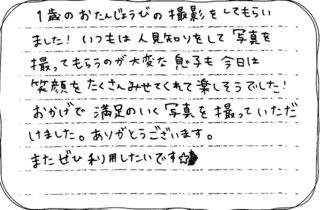 1歳のおたんじょうびの撮影をしてもらい
ました！いつもは人見知りをして写真を
撮ってもらうのが大変な息子も今日は
笑顔をたくさんみせてくれて楽しそうでした！
おかげで満足のいく写真を撮っていただ
けました。ありがとうございます。
またぜひ利用したいです☆